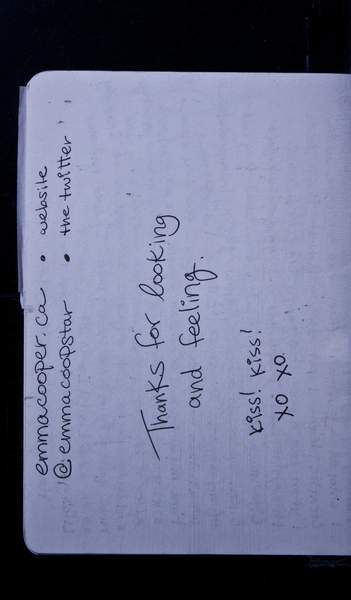 emmacooper.ca • website
@emmacoopstar • the twitter
Thanks for looking
and feeling.
kiss! kiss!
xo xo